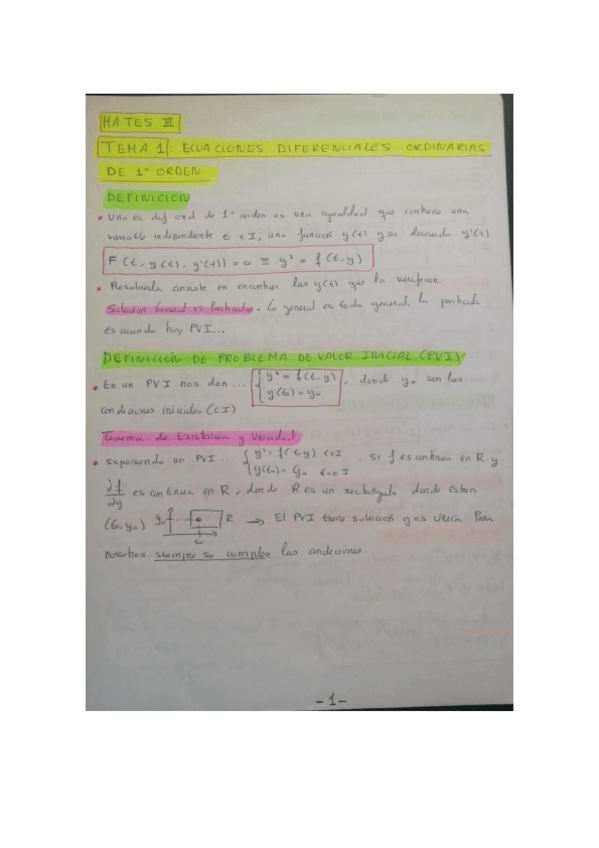 MATES III
TEMA 1: ECUACIONES DIFERENCIALES ORDINARIAS
DE 1º ORDEN
DEFINICIÓN
• Una ec dif ord de 1º orden es una igualdad que contiene una
variable independiente t ∈ I, una función y(t) y su derivada y'(t)
F(t, y(t), y'(t)) = 0 ≡ y' = f(t,y)
• Resolverla consiste en encontrar las y(t) que la verifican.
Solución General vs Particular. La general es todo general, la particular
es cuando hay PVI...
DEFINICIÓN DE PROBLEMA DE VALOR INICIAL (PVI)
• En un PVI nos dan ... { y' = f(t,y)
y(t₀) = y₀, donde y₀ son las
condiciones iniciales (CI)
Teorema de Existencia y Unicidad
• suponiendo un PVI { y' = f(t,y) t∈I
y(t₀) = y₀ t₀∈I. Si f es continua en R y
∂f/∂y es continua en R, donde R es un rectángulo donde estan
(t₀,y₀) y₀ R t₀ → El PVI tiene solución y es única. Para
nosotros siempre se cumplen las condiciones.
-1-